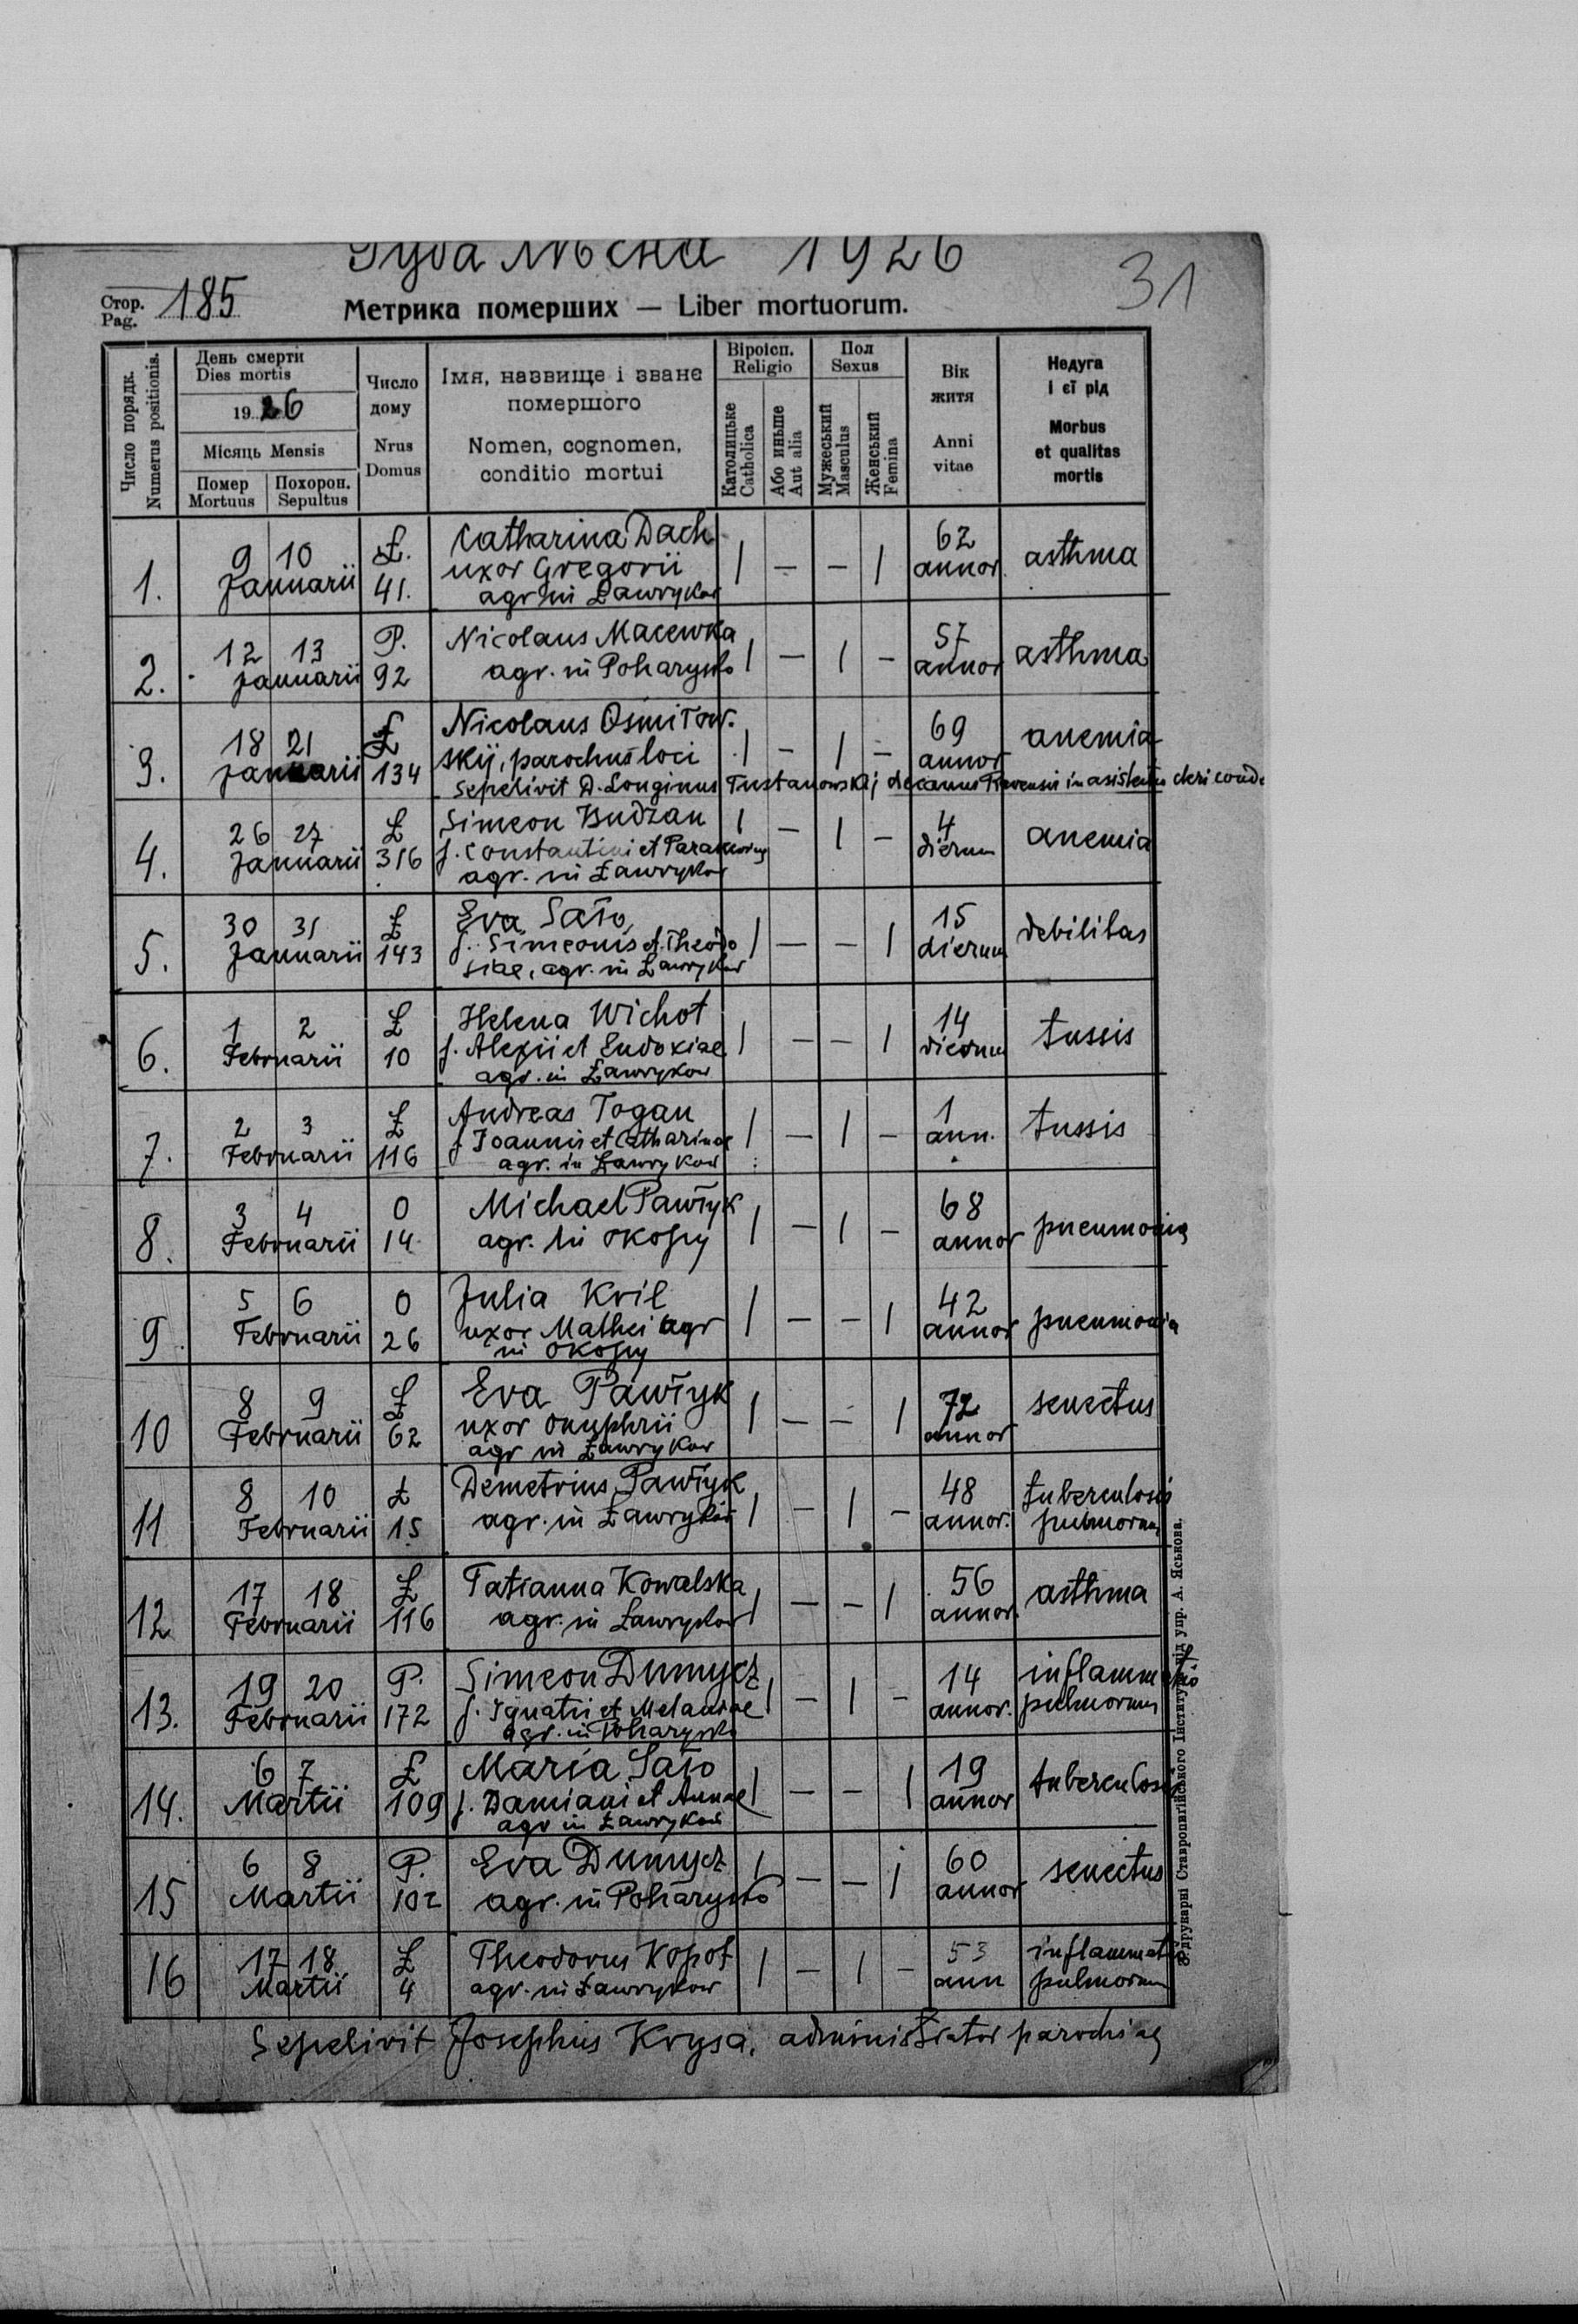 1926
31
Стор.
Pag. 185
Метрика померших — Liber mortuorum.
Число порядк.
Numerus positionis.
День смерти
Dies mortis
1926
Місяць Mensis
Помер
Mortuus
Похорон.
Sepultus
Число
дому
Nrus
Domus
Імя, назвище і званє
помершого
Nomen, cognomen,
conditio mortui
Віроісп.
Religio
Католицьке
Catholica
Або иньше
Aut alia
Пол
Sexus
Мужеський
Masculus
Женський
Femina
Вік
житя
Anni
vitae
Недуга
і єї рід
Morbus
et qualitas
mortis
1. 9 10 Januarii Ł. 41. Catharina Dach | — — | 62 annor. asthma
uxor Gregorii
agr. in Ławrykow
2. 12 13 Januarii P. 92 Nicolaus Macewka | — | — 57 annor asthma
agr. in Poharysko
3. 18 21 Januarii Ł 134 Nicolaus Osmiłow- | — | — 69 annor anemia
skij, parochus loci
Sepelivit D. Longinus Tustanowskij decanus
4. 26 27 Januarii Ł 316 Simeon Budzan | — | — 4 dierum anemia
f. Constantini et
agr. in Ławrykow
5. 30 31 Januarii Ł 143 Eva Sało, | — — | 15 dierum debilitas
f. Simeonis et Theodo
siae, agr. in Ławrykow
6. 1 2 Februarii Ł 10 Helena Wichot | — — | 14 dierum tussis
f. Alexii et Eudoxiae
agr. in Ławrykow
7. 2 3 Februarii Ł 116 Andreas Togan | — | — 1 ann. tussis
f Joannis et Catharinae
agr. in Ławrykow
8. 3 4 Februarii O 14 Michael Pawłyk | — | — 68 annor pneumonia
agr. in Okopy
9. 5 6 Februarii O 26 Julia Kril | — — | 42 annor pneumonia
uxor Mathei agr
in Okopy
10 8 9 Februarii Ł 62 Eva Pawłyk | — — | 72 annor senectus
uxor Onuphrii
agr in Ławrykow
11 8 10 Februarii Ł 15 Demetrius Pawłyk | — | — 48 annor. tuberculosis
agr. in Ławrykow pulmorum
12 17 18 Februarii Ł 116 Tatianna Kowalska | — — | 56 annor. asthma
agr. in Ławrykow
13. 19 20 Februarii P. 172 Simeon Dumycz | — | — 14 annor. inflammatio
f. Ignatii et Melaniae pulmorum
agr. in Poharysko
14. 6 7 Martii Ł 109 Maria Sało | — — | 19 annor tuberculosis
f. Damiani et Annae
agr in Ławrykow
15 6 8 Martii P. 102 Eva Dumycz | — — | 60 annor senectus
agr. in Poharysko
16 17 18 Martii Ł 4 Theodorus Kopot | — | — 53 ann inflammatio
agr. in Ławrykow pulmorum
Sepelivit Josephus Krysa, administrator parochiae
З друкарні Ставропигійського Інститута під упр. А. Яськова.